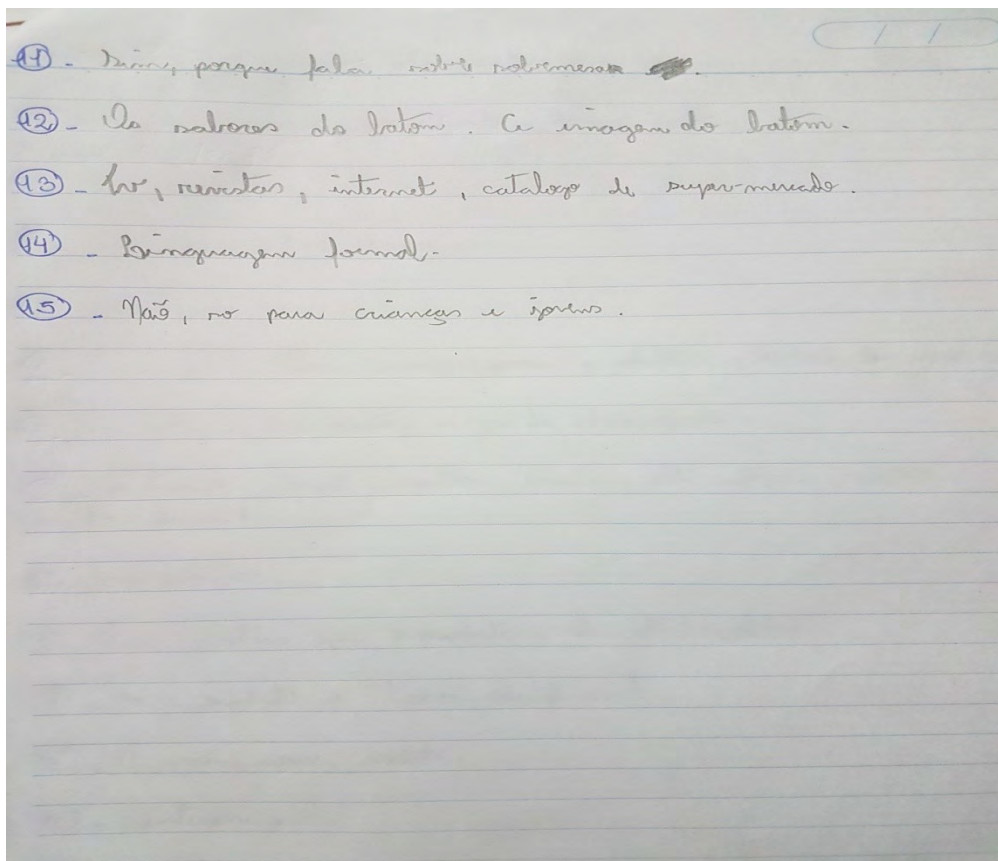 11 - Sim, porque fala sobre sobremesa.
12 - Os sabores do batom. A imagem do batom.
13 - tv, revistas, internet, catalogo de super-mercado.
14 - Linguagem formal.
15 - Não, so para crianças e jovens.